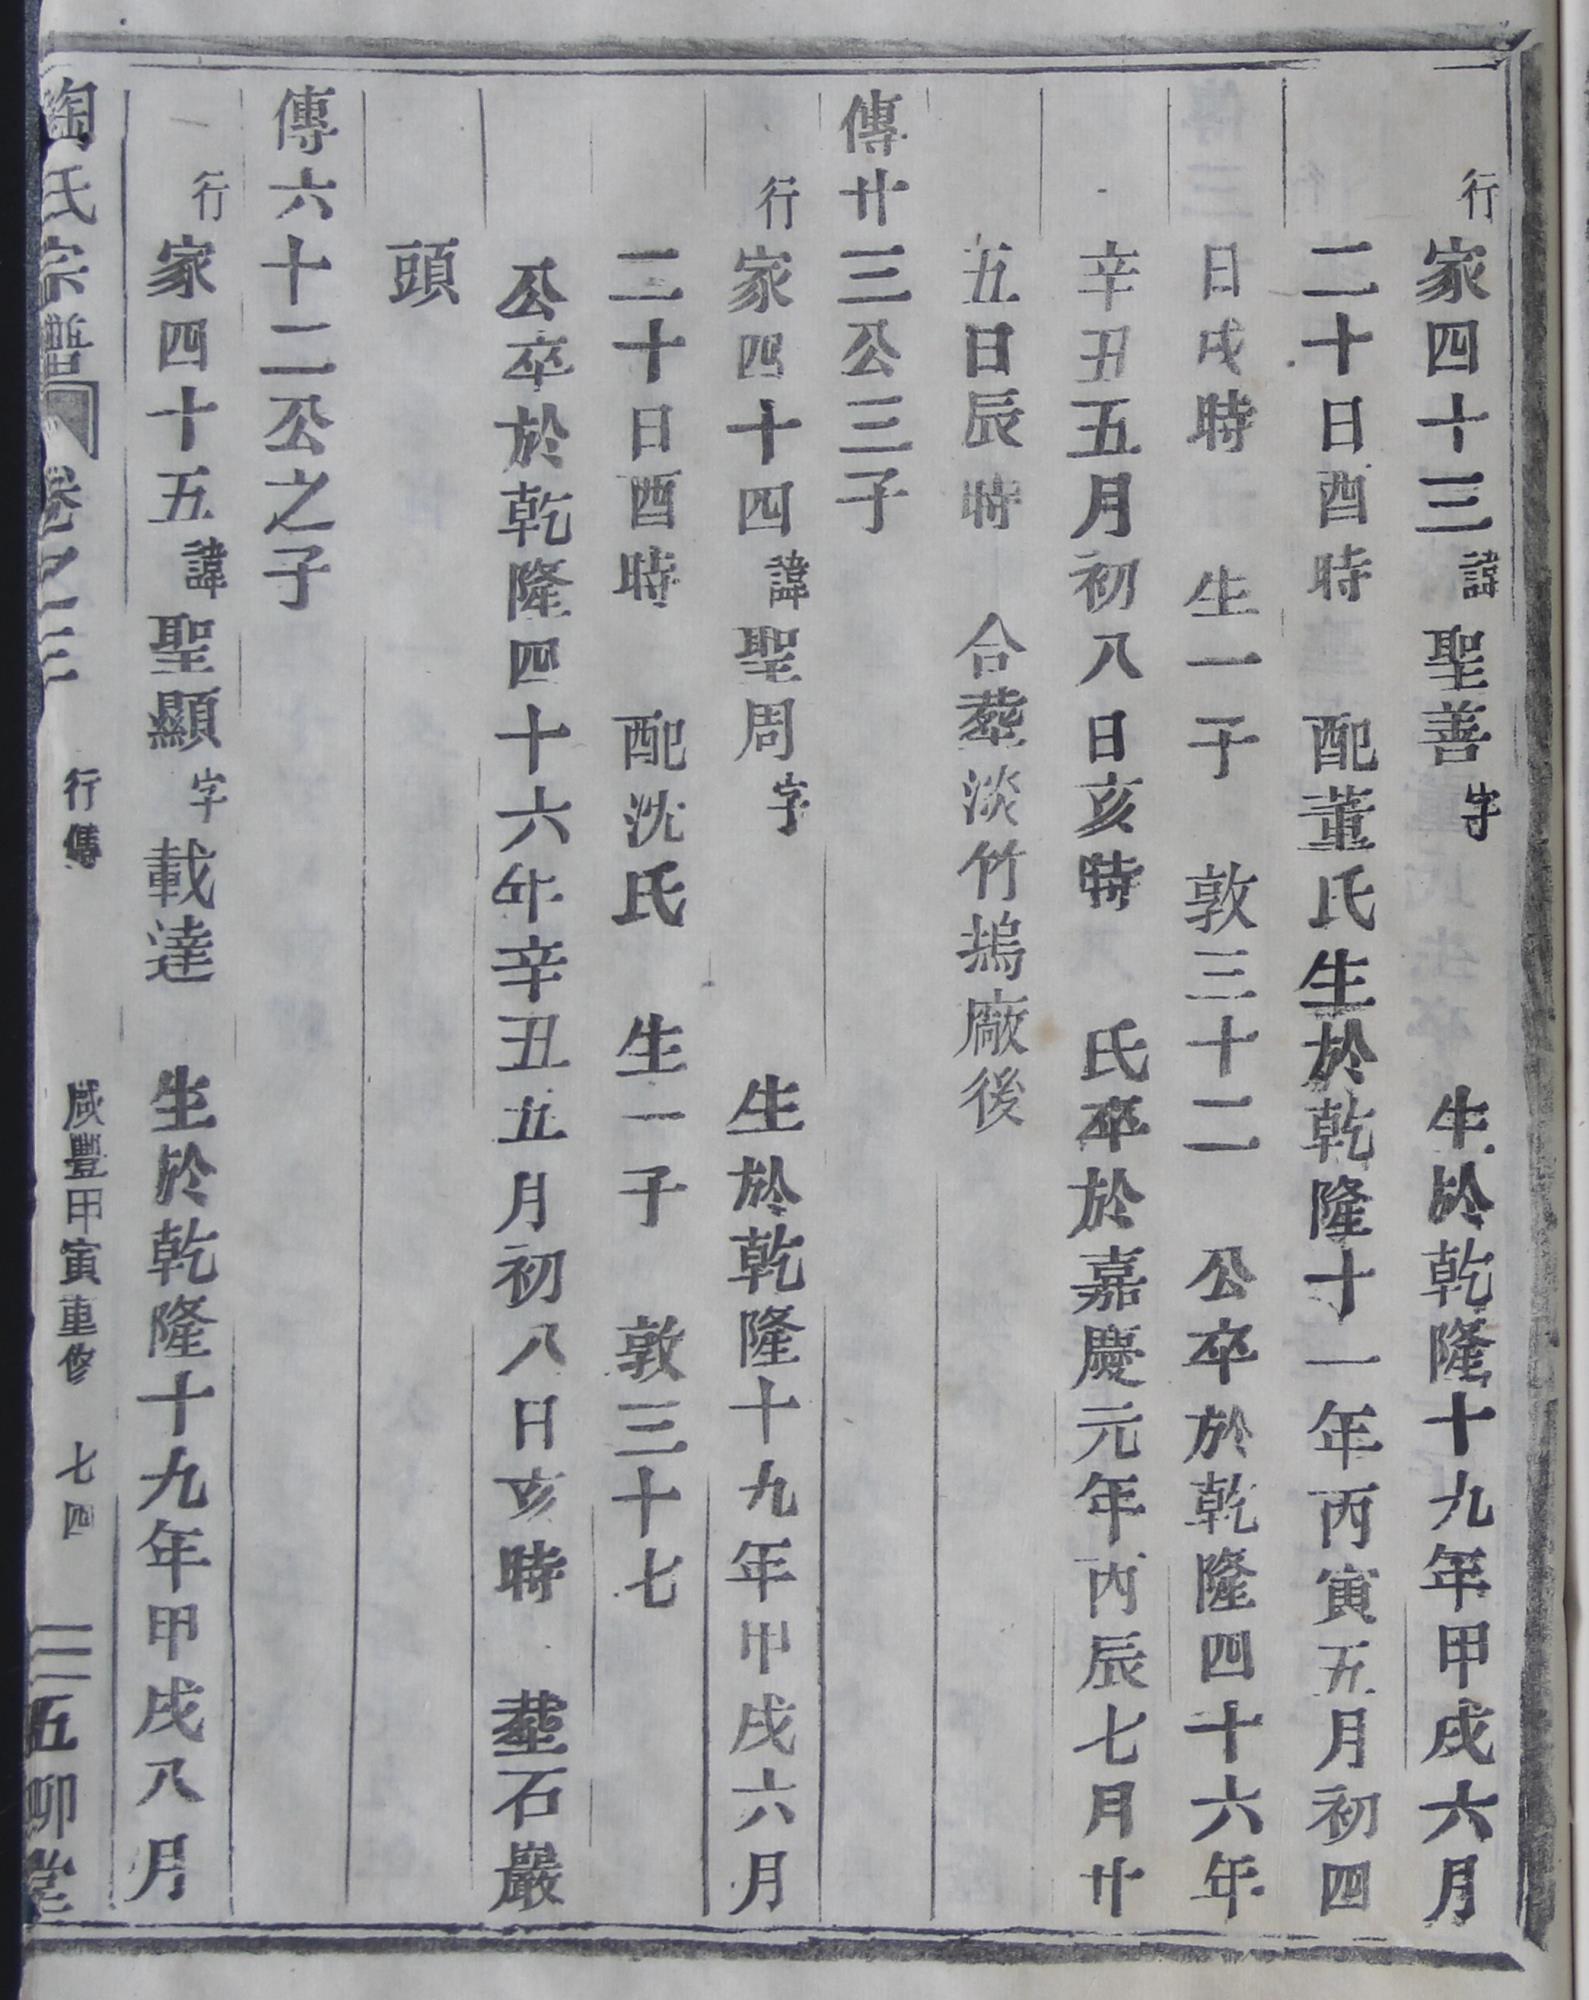 行家四十三諱聖善字 生於乾隆十九年甲戌六月
二十日酉時 配董氏生於乾隆十一年丙寅五月初四
日戌時 生一子 敦三十二 公卒於乾隆四十六年
辛丑五月初八日亥時 氏卒於嘉慶元年丙辰七月廿
五日辰時 合塟淡竹塢廠後
傳廿三公三子
行家四十四諱聖周字 生於乾隆十九年甲戌六月
二十日酉時 配沈氏 生一子 敦三十七
公卒於乾隆四十六年辛丑五月初八日亥時 塟石巖
頭
傳六十二公之子
行家四十五諱聖顯字載達 生於乾隆十九年甲戌八月
陶氏宗譜 卷之三 行傳 咸豐甲寅重修 七四 五柳堂